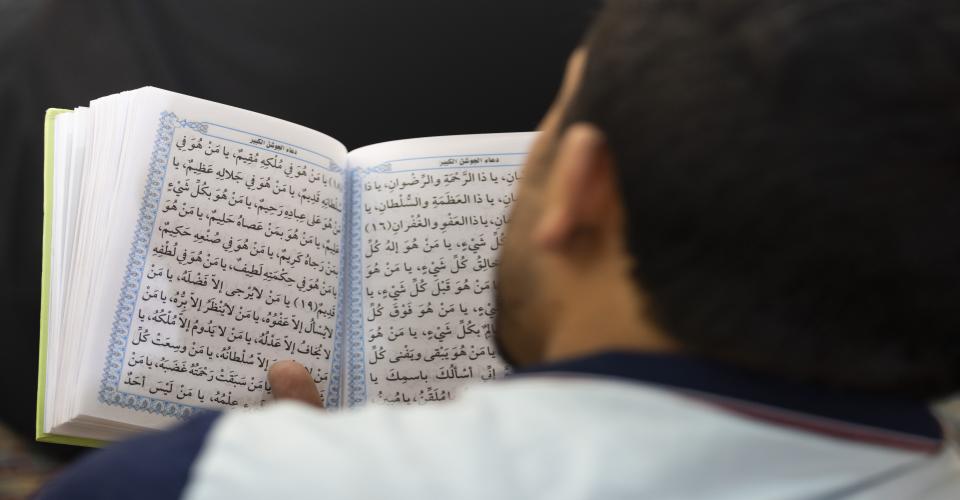 دعاء الجوشن الكبير
يا ذا الرَّحْمَةِ والرِّضْوانِ، يا ذا
يا ذَا العَظَمَةِ والسُّلْطانِ، يا
ياذا العَفْوِ والغُفْرانِ(١٦)
كُلِّ شَيْءٍ، يا مَنْ هُوَ إلهُ كُلِّ
خالِقُ كُلِّ شَيْءٍ، يا مَنْ هُوَ
مَنْ هُوَ قَبْلَ كُلِّ شَيْءٍ، يا
شَيْءٍ، يا مَنْ هُوَ فَوْقَ كُلِّ
بِكُلِّ شَيْءٍ، يا مَنْ هُوَ
يا مَنْ هُوَ يَبْقى ويَفْنى كُلُّ
إنّي أسْألُكَ باسمِكَ يا
مُلَقِّنُ، يا مُبينُ
دعاء الجوشن الكبير
(١٨) يا مَنْ هُوَ في مُلْكِهِ مُقيمٌ، يا مَنْ هُوَ في
سُلْطانِهِ قَديمٌ، يا مَنْ هُوَ في جَلالِهِ عَظيمٌ، يا
مَنْ هُوَ عَلى عِبادِهِ رَحيمٌ، يا مَنْ هُوَ بِكُلِّ شَيْءٍ
عَليمٌ، يا مَنْ هُوَ بِمَنْ عَصاهُ حَليمٌ، يا مَنْ هُوَ
بِمَنْ رَجاهُ كَريمٌ، يا مَنْ هُوَ في صُنْعِهِ حَكيمٌ،
يا مَنْ هُوَ في حِكْمَتِهِ لَطيفٌ، يا مَنْ هُوَ في لُطْفِهِ
قَديمٌ(١٩) يا مَنْ لا يُرْجى إلاّ فَضْلُهُ، يا مَنْ
لا يُسْألُ إلاّ عَفْوُهُ، يا مَنْ لا يُنْظَرُ إلاّ بِرُّهُ، يا مَنْ
لا يُخافُ إلاّ عَدْلُهُ، يا مَنْ لا يَدُومُ إلاّ مُلْكُهُ، يا
مَنْ إلاّ سُلْطانُهُ، يا مَنْ وَسِعَتْ كُلَّ
يا مَنْ سَبَقَتْ رَحْمَتُهُ غَضَبَهُ، يا مَنْ
عِلْمُهُ، يا مَنْ لَيْسَ أحَدٌ